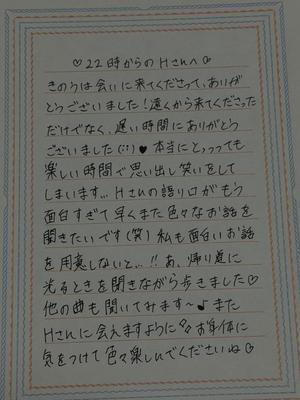 ♡22時からのHさんへ♡
きのうは会いに来てくださって、ありが
とうございました！遠くから来てくださった
だけでなく、遅い時間にありがとう
ございました(::)♥本当にとっっっても
楽しい時間で思い出し笑いをして
しまいます... Hさんの語り口がもう
面白すぎて早くまた色々なお話を
聞きたいです(笑)私も面白いお話
を用意しないと...!!あ、帰り道に
光るときを聞きながら歩きました♡
他の曲も聞いてみます〜♪また
Hさんに会えますように お身体に
気をつけて色々楽しんでくださいね♡